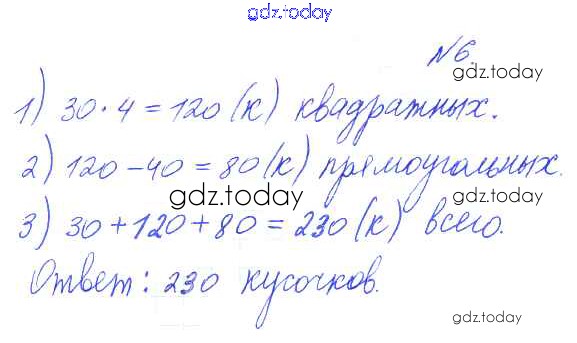 gdz.today
№6.
gdz.today
1) 30·4=120(к) квадратных.
2) 120-40=80(к) прямоугольных.
gdz.today
gdz.today
3) 30+120+80=230(к) всего.
Ответ: 230 кусочков.
gdz.today